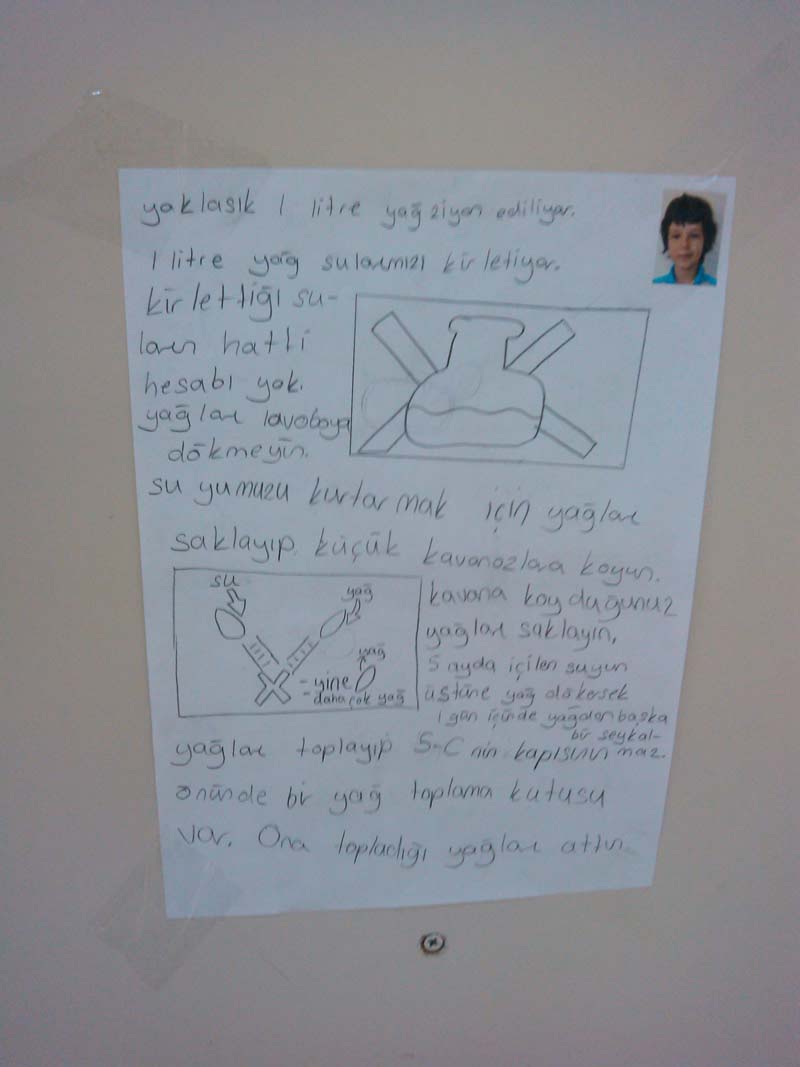 yaklasık 1 litre yağ ziyan ediliyor.
1 litre yağ sularımızı kirletiyor.
kirlettiği su-
ların hatti
hesabı yok.
yağları lavoboya
dökmeyin.
su yumuzu kurtarmak için yağları
saklayıp küçük kavanozlara koyun.
su
yağ
yağ
- yine
- daha çok yağ
kavana koyduğunuz
yağları saklayın,
5 ayda içilen suyun
üstüne yağ dökersek
1 gün içinde yağdan başka
bir seykal-
maz.
yağları toplayıp 5-C nin kapısının
önünde bir yağ toplama kutusu
var. Ona topladığı yağları attın.